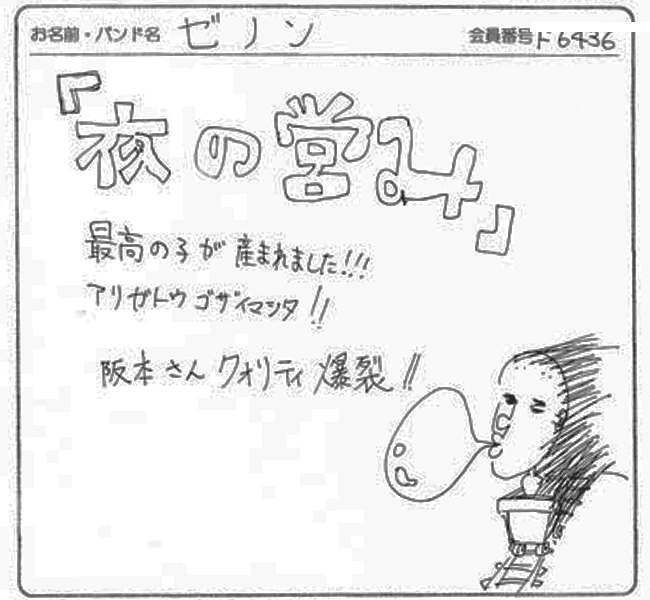 お名前・バンド名 ゼノン 会員番号 F6436
『夜の営み』
最高の子が産まれました!!!
アリガトウゴザイマシタ!!
阪本さんクオリティ爆裂!!